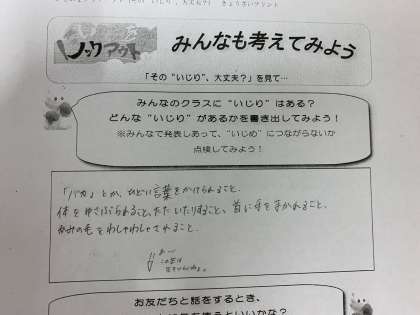 ノックアウト
みんなも考えてみよう
「その“いじり”、大丈夫？」を見て…
みんなのクラスに“いじり”はある？
どんな“いじり”があるかを書き出してみよう！
※みんなで発表しあって、“いじめ”につながらないか
点検してみよう！
「バカ」とか、ひどい言葉をかけられること。
体をゆさぶられること、たたいたりすること、首に手をまかれること。
かみの毛をわしゃわしゃされること。
お友だちと話をするとき、